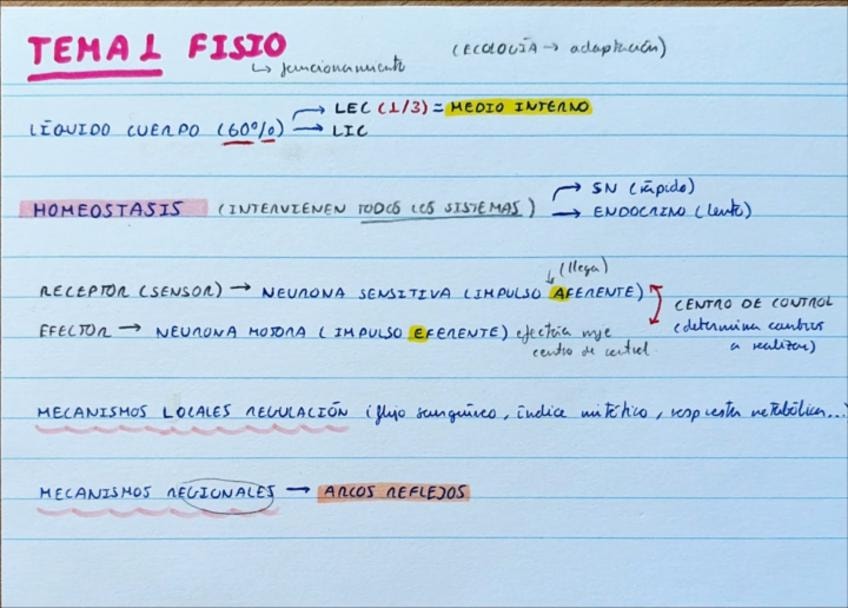 TEMA 1 FISIO
↳ funcionamiento
(ECOLOGÍA → adaptación)
LÍQUIDO CUERPO (60%) → LEC (1/3) = MEDIO INTERNO
→ LIC
HOMEOSTASIS (INTERVIENEN TODOS LOS SISTEMAS) → SN (rápido)
→ ENDOCRINO (lento)
(llega)
RECEPTOR (SENSOR) → NEURONA SENSITIVA (IMPULSO AFERENTE)
EFECTOR → NEURONA MOTORA (IMPULSO EFERENTE) efectúa msje
centro de control
CENTRO DE CONTROL
(determina cambios
a realizar)
MECANISMOS LOCALES REGULACIÓN (flujo sanguíneo, índice mitótico, respuesta metabólica...)
MECANISMOS REGIONALES → ARCOS REFLEJOS